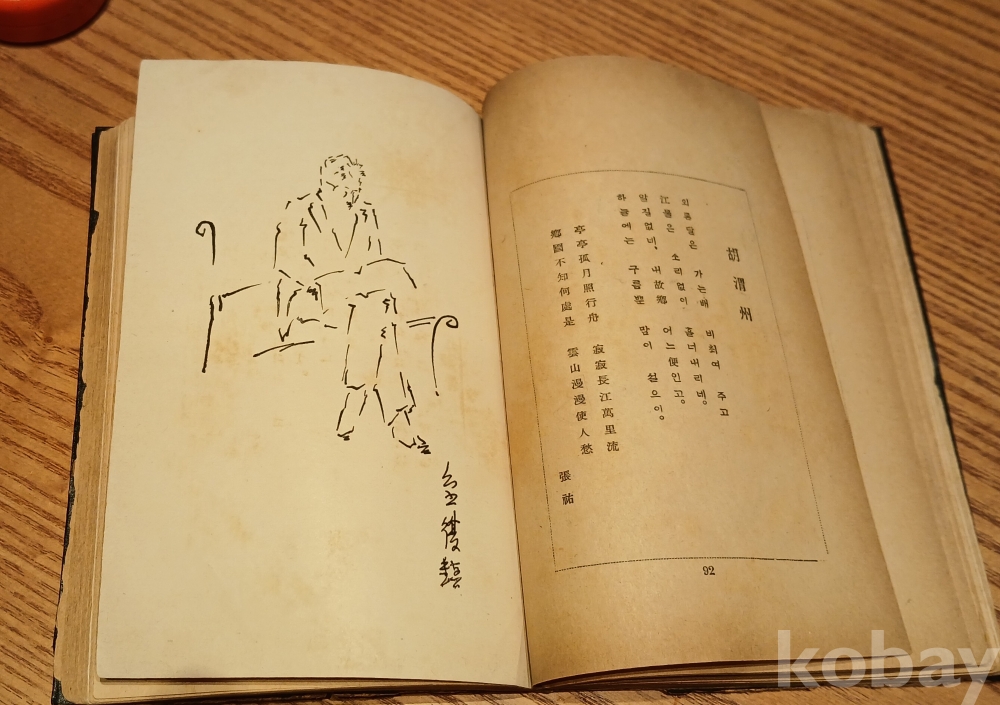 金復鎭
胡渭州
외롭달은 가는배 비최여 주고
江물은 소리없이 흘너내리네。
알길없네, 내故鄕 어느便인고。
하늘에는 구름ᄲᅮᆫ 맘이 설으이。
亭亭孤月照行舟 寂寂長江萬里流
鄕國不知何處是 雲山漫漫使人愁
張祐
92
kobay